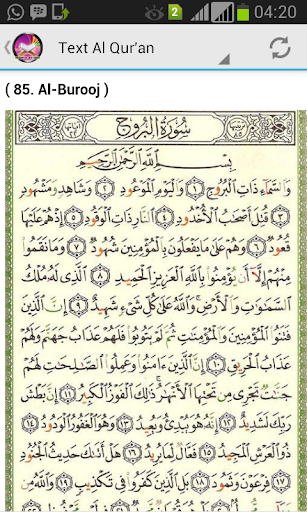 2 04:20
Text Al Qur'an
( 85. Al-Burooj )
سُورَةُ البُرُوجِ
بِسْمِ اللَّهِ الرَّحْمَٰنِ الرَّحِيمِ
وَالسَّمَاءِ ذَاتِ الْبُرُوجِ ١ وَالْيَوْمِ الْمَوْعُودِ ٢ وَشَاهِدٍ وَمَشْهُودٍ
٣ قُتِلَ أَصْحَٰبُ الْأُخْدُودِ ٤ النَّارِ ذَاتِ الْوَقُودِ ٥ إِذْ هُمْ عَلَيْهَا
قُعُودٌ ٦ وَهُمْ عَلَىٰ مَا يَفْعَلُونَ بِالْمُؤْمِنِينَ شُهُودٌ ٧ وَمَا نَقَمُوا
مِنْهُمْ إِلَّا أَن يُؤْمِنُوا بِاللَّهِ الْعَزِيزِ الْحَمِيدِ ٨ الَّذِي لَهُ مُلْكُ
السَّمَٰوَٰتِ وَالْأَرْضِ وَاللَّهُ عَلَىٰ كُلِّ شَيْءٍ شَهِيدٌ ٩ إِنَّ الَّذِينَ
فَتَنُوا الْمُؤْمِنِينَ وَالْمُؤْمِنَٰتِ ثُمَّ لَمْ يَتُوبُوا فَلَهُمْ عَذَابُ جَهَنَّمَ وَلَهُمْ
عَذَابُ الْحَرِيقِ ١٠ إِنَّ الَّذِينَ ءَامَنُوا وَعَمِلُوا الصَّٰلِحَٰتِ لَهُمْ
جَنَّٰتٌ تَجْرِي مِن تَحْتِهَا الْأَنْهَٰرُ ذَٰلِكَ الْفَوْزُ الْكَبِيرُ ١١ إِنَّ بَطْشَ
رَبِّكَ لَشَدِيدٌ ١٢ إِنَّهُ هُوَ يُبْدِئُ وَيُعِيدُ ١٣ وَهُوَ الْغَفُورُ الْوَدُودُ ١٤
ذُو الْعَرْشِ الْمَجِيدُ ١٥ فَعَّالٌ لِّمَا يُرِيدُ ١٦ هَلْ أَتَىٰكَ حَدِيثُ الْجُنُودِ
١٧ فِرْعَوْنَ وَثَمُودَ ١٨ بَلِ الَّذِينَ كَفَرُوا فِي تَكْذِيبٍ ١٩ وَاللَّهُ